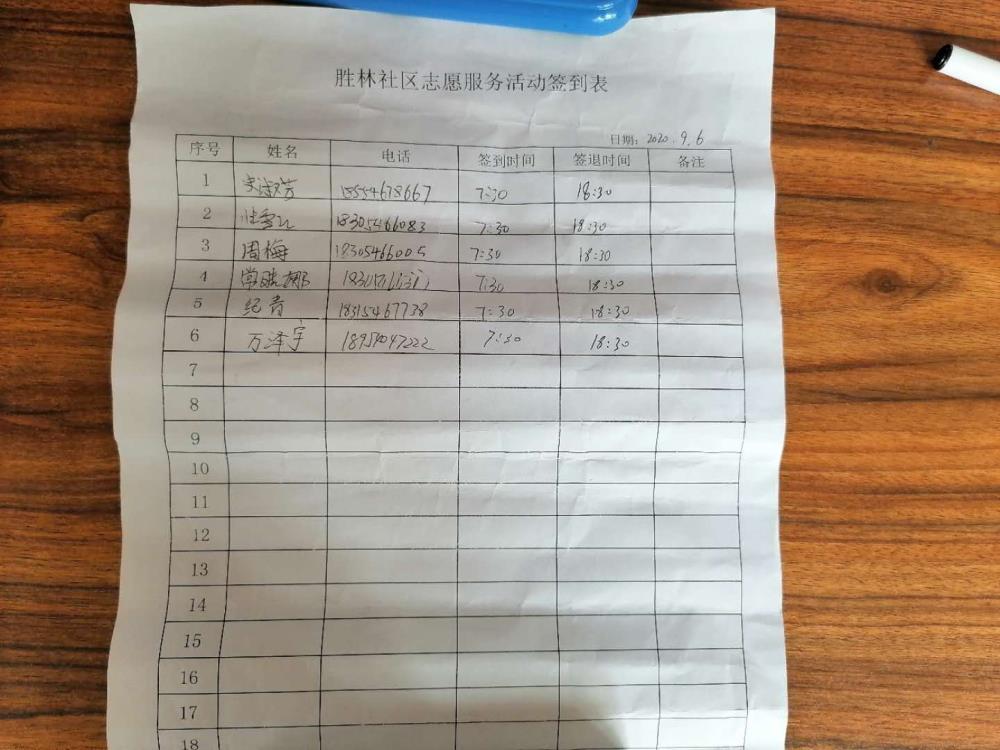 胜林社区志愿服务活动签到表
日期: 2020.9.6
序号 姓名 电话 签到时间 签退时间 备注
1 18554678667 7:30 18:30
2 18305466083 7:30 18:30
3 周梅 18305466005 7:30 18:30
4 7:30 18:30
5 纪青 18315467738 7:30 18:30
6 万泽宇 18954047222 7:30 18:30
7
8
9
10
11
12
13
14
15
16
17
18